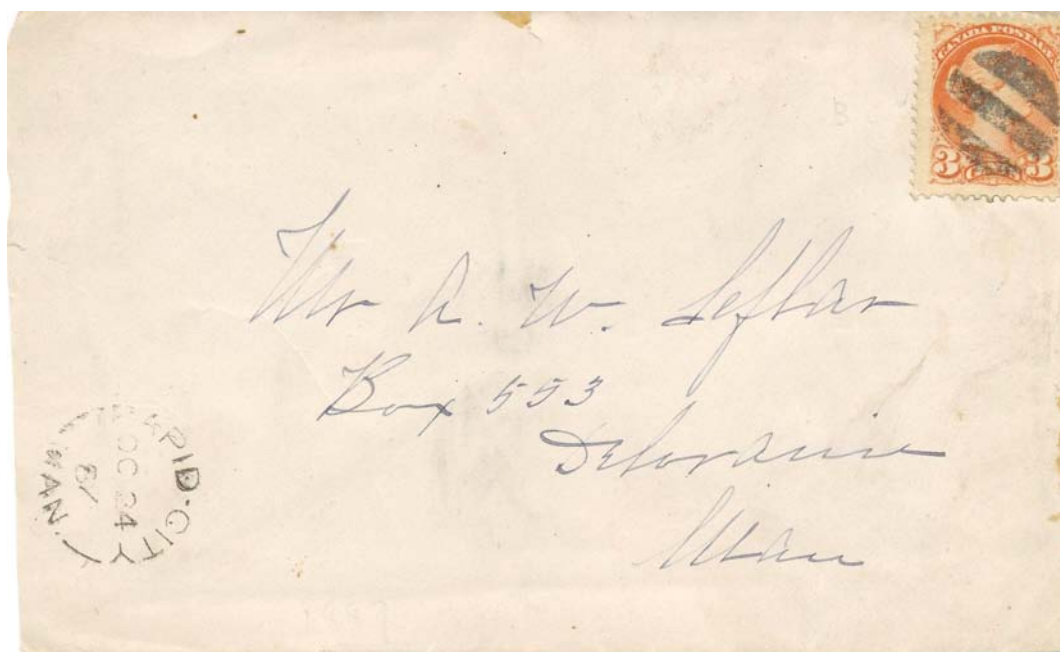 CANADA POSTAGE
3 CENTS 3
Mr A. W. Leflar
Box 553
Deloraine
Man
RAPID·CITY
OC 24
MAN.